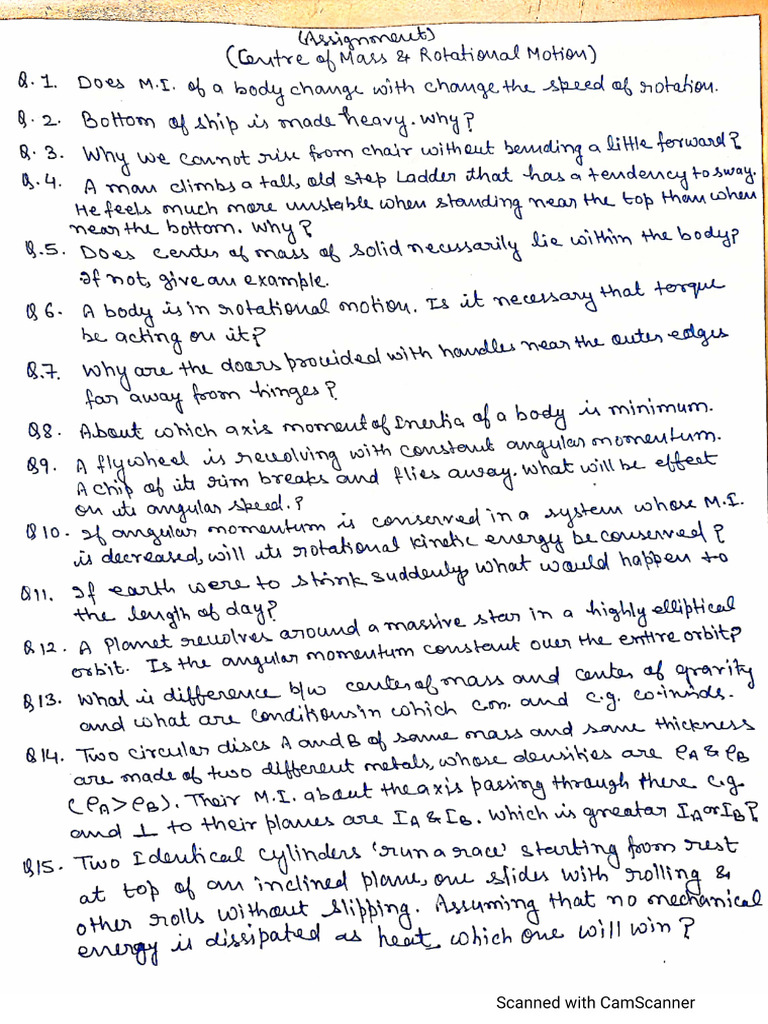 (Assignment)
(Centre of Mass & Rotational Motion)
Q.1. Does M.I. of a body change with change the speed of rotation.
Q.2. Bottom of ship is made heavy. why?
Q.3. Why we cannot rise from chair without bending a little forward?
Q.4. A man climbs a tall, old step ladder that has a tendency to sway.
He feels much more unstable when standing near the top than when
near the bottom. Why?
Q.5. Does center of mass of solid necessarily lie within the body?
If not, give an example.
Q6. A body is in rotational motion. Is it necessary that torque
be acting on it?
Q.7. Why are the doors provided with handles near the outer edges
far away from hinges?
Q8. About which axis moment of Inertia of a body is minimum.
Q9. A flywheel is revolving with constant angular momentum.
A chip of its rim breaks and flies away. what will be effect
on its angular speed.?
Q10. If angular momentum is conserved in a system whose M.I.
is decreased, will its rotational kinetic energy be conserved?
Q11. If earth were to shink suddenly what would happen to
the length of day?
Q12. A Planet revolves around a massive star in a highly elliptical
orbit. Is the angular momentum constant over the entire orbit?
Q13. What is difference b/w center of mass and center of gravity
and what are conditions in which c.m. and c.g. co-inside.
Q14. Two circular discs A and B of same mass and same thickness
are made of two different metals, whose densities are ρA & ρB
(ρA > ρB). Their M.I. about the axis passing through there c.g.
and ⊥ to their planes are IA & IB. which is greater IA or IB?
Q15. Two Identical cylinders 'run a race' starting from rest
at top of an inclined plane, one slides with rolling &
other rolls without slipping. Assuming that no mechanical
energy is dissipated as heat, which one will win?
Scanned with CamScanner